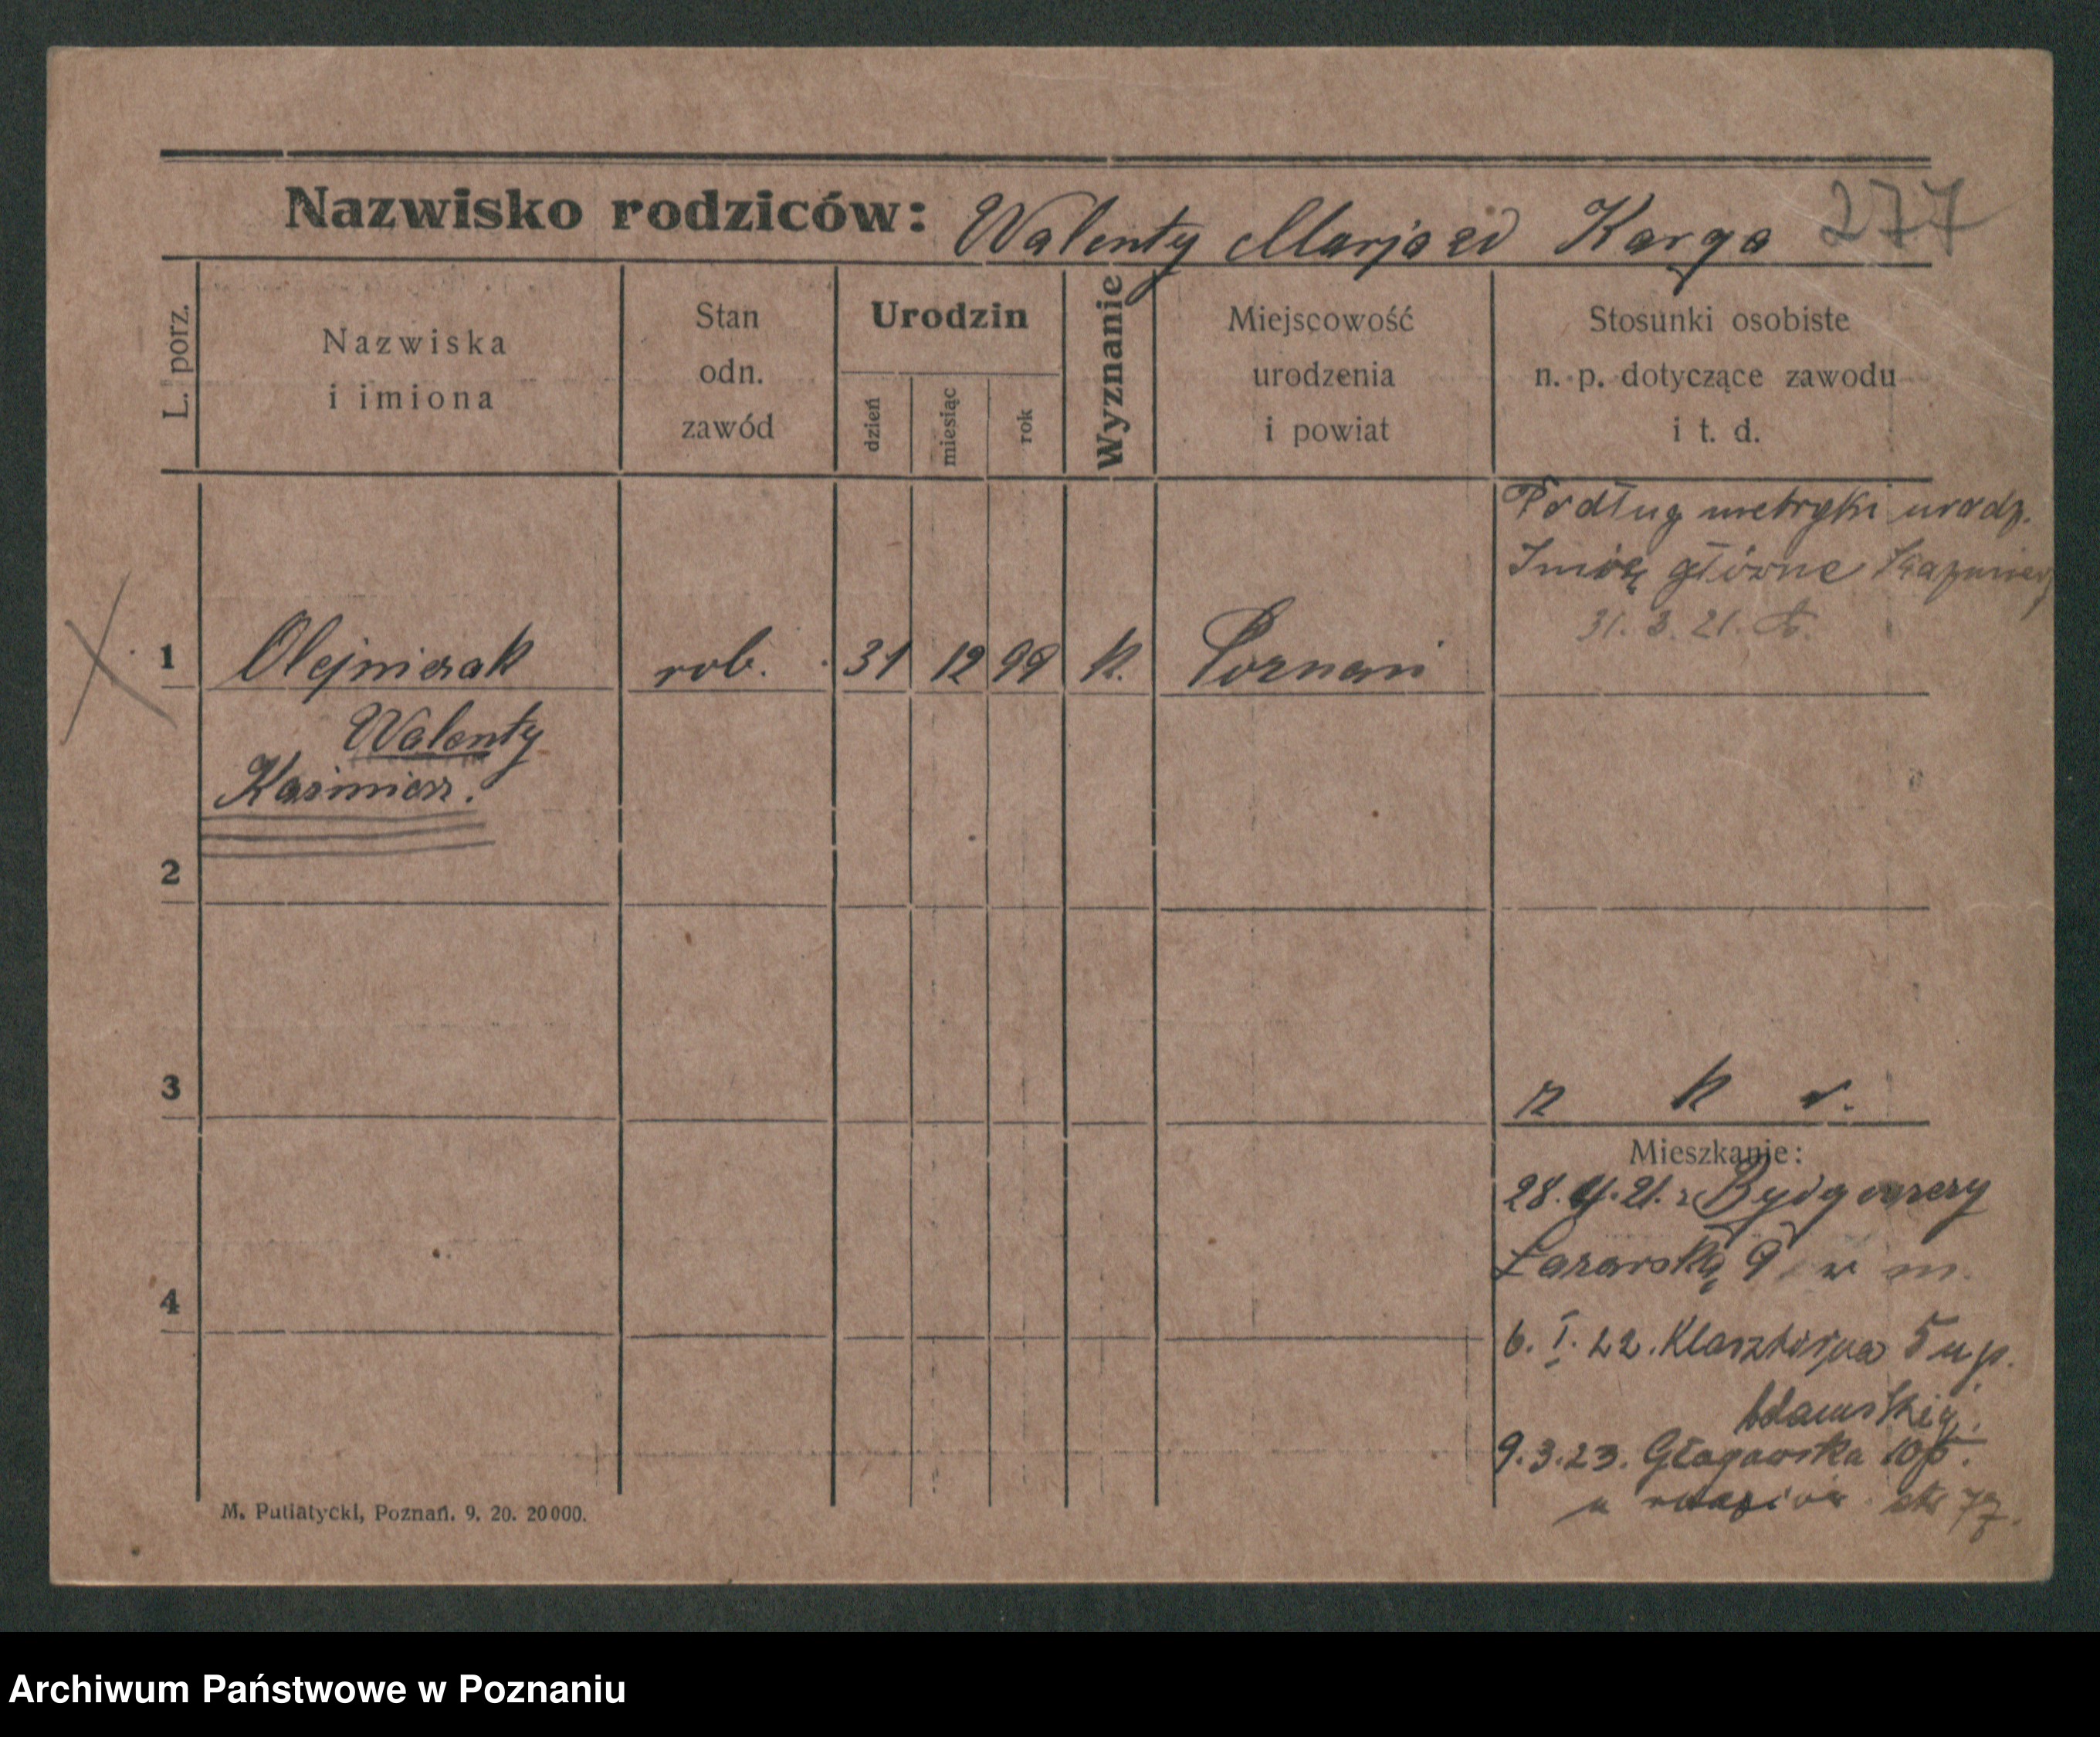 277
Nazwisko rodziców: Walenty Marja zd Karga
L. porz.
Nazwiska
i imiona
Stan
odn.
zawód
Urodzin
dzień
miesiąc
rok
Wyznanie
Miejscowość
urodzenia
i powiat
Stosunki osobiste
n. p. dotyczące zawodu
i t. d.
Podług metryki urodz.
Imię główne Kazimierz
31. 3. 21.
1 Olejniczak rob. 31 12 99 k. Poznań
Walenty
Kazimierz.
2
3
k r.
Mieszkanie:
28. 21. z Bydgoszczy
Łazarska 9 w m.
4
6. I. 22. Klasztorna 5 u p.
Adamskiej.
9.3.23. Głogowska 105.
u rodziców
M. Putiatycki, Poznań. 9. 20. 20000.
Archiwum Państwowe w Poznaniu